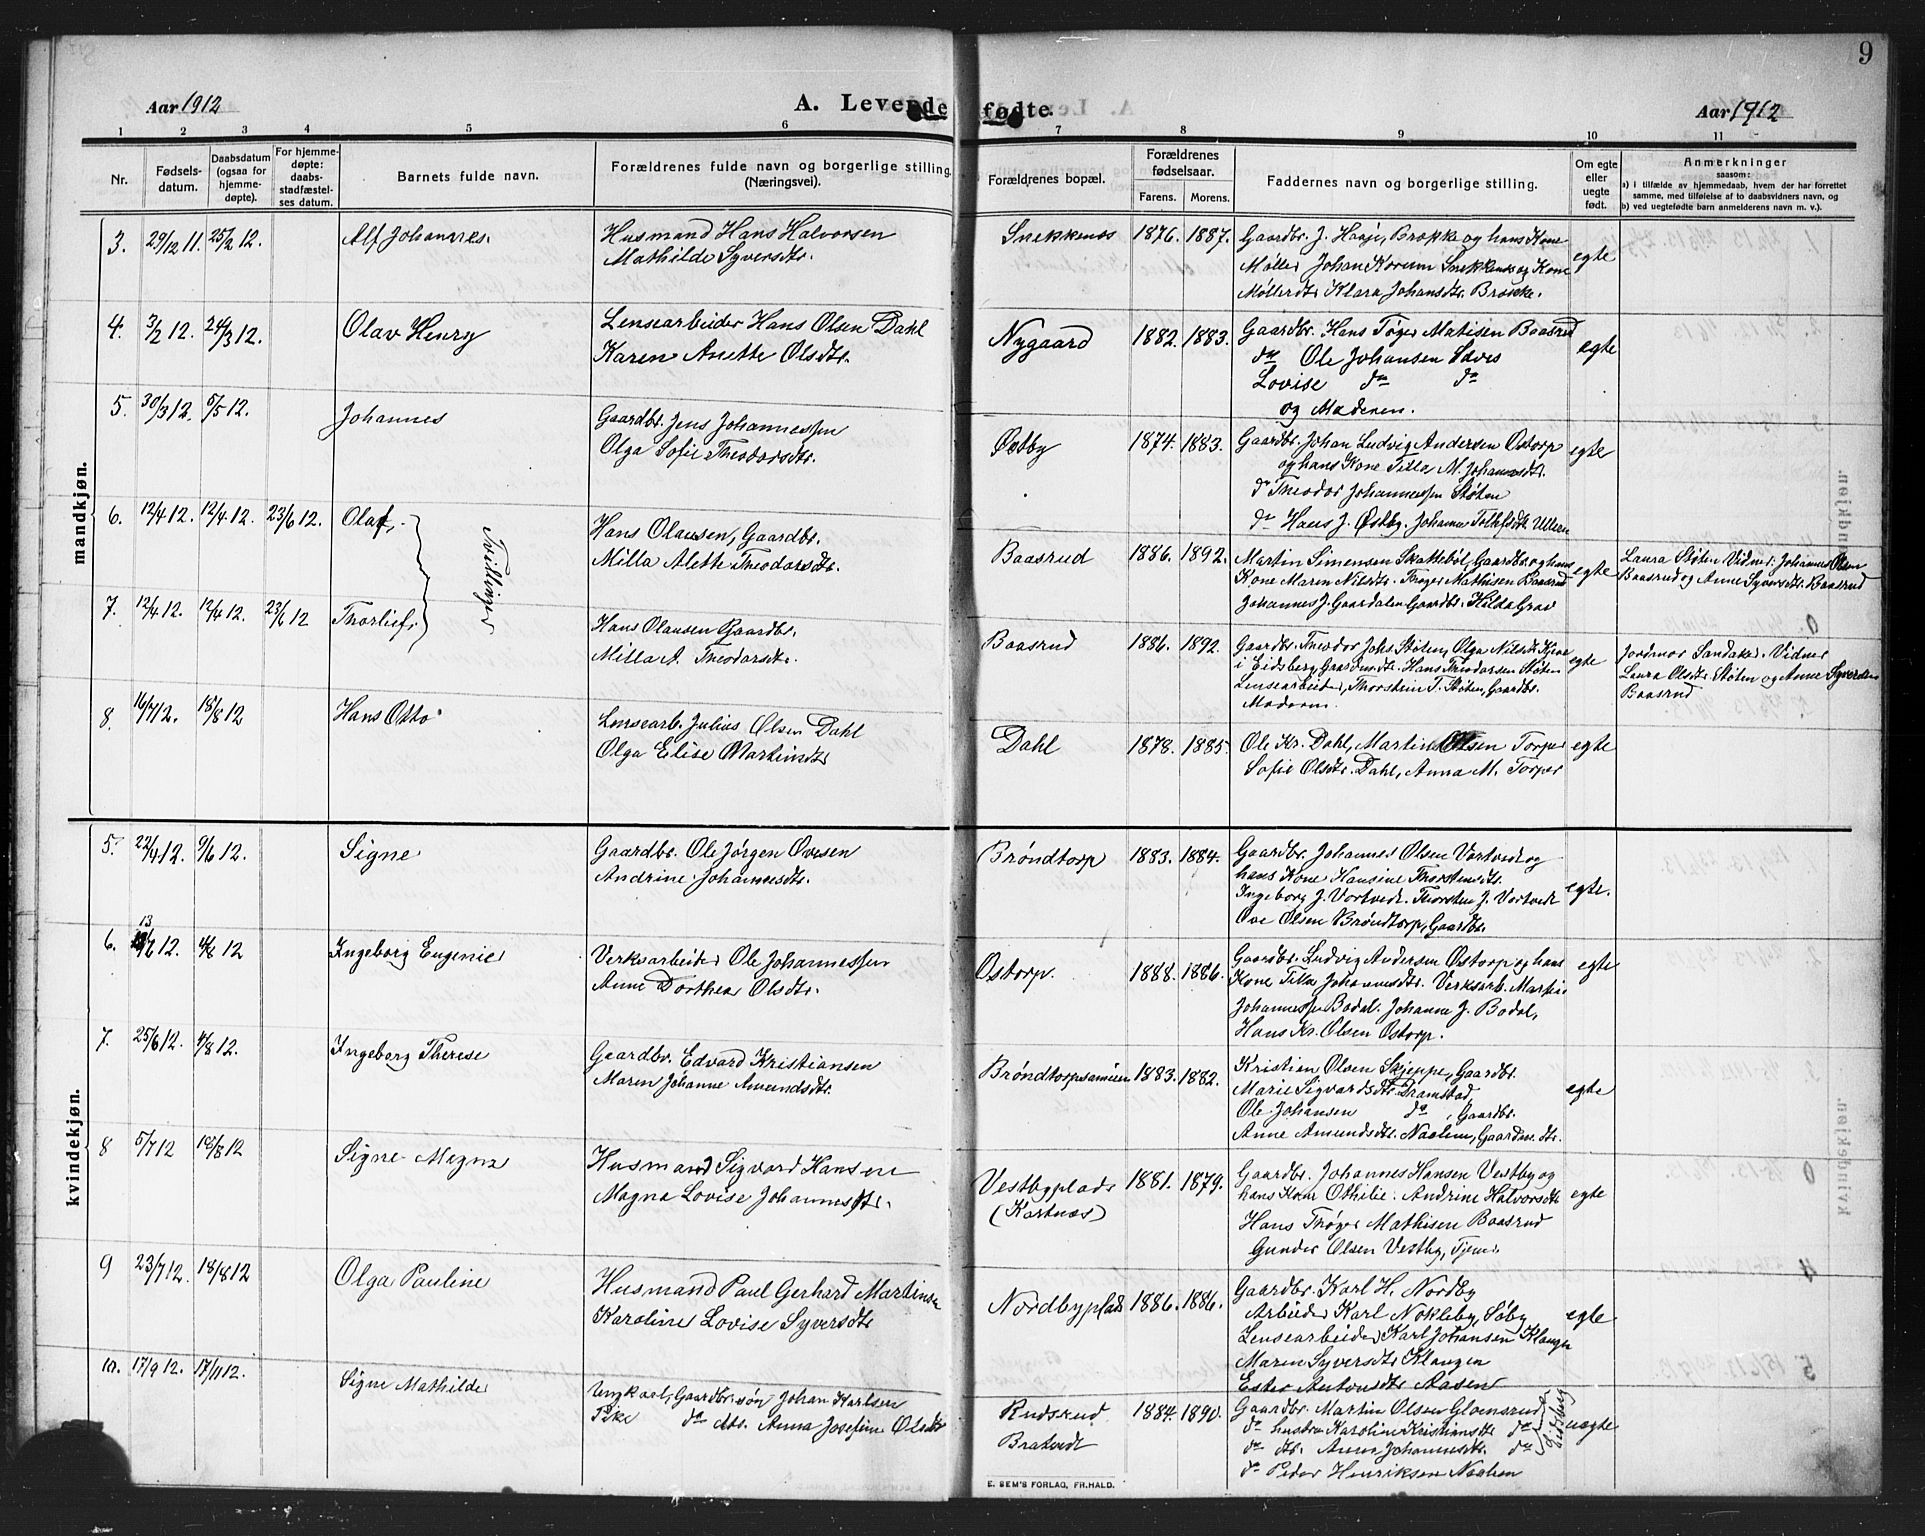 9
Aar 1912
A. Levende fødte.
Aar 1912
1 2 3 4 5 6 7 8 9 10 11
Nr.
Fødsels-
datum.
Daabsdatum
(ogsaa for
hjemme-
døpte).
For hjemme-
døpte:
daabs-
stadfæstel-
ses datum.
Barnets fulde navn.
Forældrenes fulde navn og borgerlige stilling.
(Næringsvei).
Forældrenes bopæl.
Forældrenes
fødselsaar.
Farens. Morens.
Faddernes navn og borgerlige stilling.
Om egte
eller
uegte
født.
Anmerkninger
saasom:
a) i tilfælde av hjemmedaab, hvem der har forrettet
samme, med tilføielse af to daabsvidners navn, og
b) ved uegtefødte barn anmelderens navn m. v.).
mandkjøn.
3. 29/12 11. 25/2 12. Alf Johannes.
Husmand Hans Halvorsen
Mathilde Syversdtr.
Snekkenes 1876. 1887.
Gaardbr. J. Haaje, Brokke og hans Kone
Møller Johan Korum Snekkenes og Kone
Møllerdtr Klara Johansdtr. Brokke.
egte
4. 3/2 12. 24/3 12. Olav Henry
Lensearbeider Hans Olsen Dahl
Karen Anette Olsdtr.
Nygaard 1882. 1883.
Gaardbr. Hans Tøger Matisen Baasrud
do Ole Johansen
Lovise do do
og Moderen.
egte
5. 30/3 12. 5/5 12. Johannes
Gaardbr. Jens Johannessen
Olga Sofie Theodorsdtr.
Østby 1874. 1883.
Gaardbr. Johan Ludvig Andersen Ostorp
og hans Kone Tilla M. Johannesdtr.
do Theodor Johannessen Støten
do Hans J. Østby. Johanne Tollefsdtr Ullern
egte
6. 12/4 12. 12/4 12. 23/6 12. Olaf,
Tvillinger
Hans Olausen, Gaardbr.
Milla Alette Theodorsdtr.
Baasrud 1886. 1892.
Martin Simensen Skattebøl, Gaardbr. og hans
Kone Maren Nilsdtr. Thøger Mathisen Baasrud
Johannes J. Gaardalen Gaardbr. Hilda Grav
egte
Laura Støten Vidner: Johannes Olsen
Baasrud og Anne Syversdtr. Baasrud
7. 12/4 12. 12/4 12. 23/6 12 Thorleif
Hans Olausen Gaardbr.
Milla A. Theodorsdtr.
Baasrud 1886. 1892.
Gaardbr. Theodor Johs Støten, Olga Nilsdtr
i Eidsberg, Hans Theodorsen Støten
Lensearbeider, Thorstein T. Støten, Gaardbr.
Moderen.
egte
Jordmor Sandaker. Vidner
Laura Olsdtr. Støten og Anne Syversdtr
Baasrud
8 16/4 12. 18/8 12 Hans Otto
Lensearb. Julius Olsen Dahl
Olga Elise Martinsdtr
Dahl 1878. 1885.
Ole Kr. Dahl, Martin Olsen Torper
Sofie Olsdtr. Dahl, Anna M. Torper
egte
kvindekjøn.
5. 22/4 12. 9/6 12. Signe
Gaardbr. Ole Jørgen Ovesen
Andrine Johannesdtr.
Brøndtorp 1883. 1884.
Gaardbr. Johannes Olsen Vortvedt og
hans Kone Hansine Thorstensdtr.
Ingeborg J. Vortvedt. Thorsten J. Vortvedt
Ove Olsen Brøndtorp, Gaardbr.
egte.
6. 13/6 12. 4/8 12 Ingeborg Eugenie
Verksarbeider Ole Johannessen
Anne Dorthea Olsdtr.
Ostorp. 1888. 1886.
Gaardbr. Ludvig Andersen Ostorp og hans
Kone Tilla Johannesdtr. Verksarb. Martin
Johannessen Bodal. Johanne J. Bodal,
Hans Kr. Olsen Ostorp.
egte
7. 25/6 12. 4/8 12. Ingeborg Therese
Gaardbr. Edvard Kristiansen
Maren Johanne Amundsdtr.
Brøndtorpsameien 1883. 1882.
Kristian Olsen Skjeppe, Gaardbr.
Marie Sigvardsdtr Dramstad
Ole Johansen do, Gaardbr.
Anne Amundsdtr. Naalen, Gaardm. dtr.
egte
8 5/7 12 18/8 12 Signe Magna
Husmand Sigvard Hansen
Magna Lovise Johannesdtr.
Vestbyplads
(Kortnes) 1881. 1879.
Gaardbr. Johannes Hansen Vestby og
hans Kone Othilie. Andrine Halvorsdtr
Hans Thøger Mathisen Baasrud
Gunder Olsen Vestby, Tjener
egte
9 23/7 12. 18/8 12 Olga Pauline
Husmand Paul Gerhard Martinsen
Karoline Lovise Syversdtr
Nordbyplads 1886. 1886.
Gaardbr. Karl H. Nordby
Arbeider Karl Nokleby, Søby
Lensearbeider Karl Johansen Klaugen
Maren Syversdtr Klaugen
Ester Antonsdtr Aasen
egte
10. 17/9 12. 17/11 12. Signe Mathilde
Ungkarl, Gaardbr. søn Johan Karlsen
Pike do dtr. Anna Josefine Olsdtr
Rudsrud
Bratvedt 1884. 1890.
Gaardbr. Martin Olsen Glomsrud
do hustru Karoline Kristiansdtr do
do dtr. Anna Johannesdtr. do
do Peder Henriksen Naalen
Eidsberg
uegte
E. SEM'S FORLAG, FR.HALD.